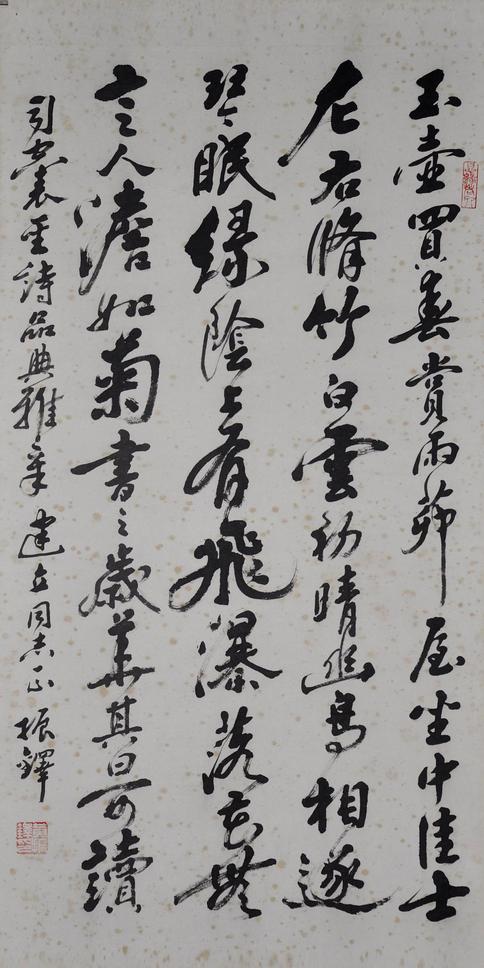 玉壺買春賞雨茆屋坐中佳士
左右脩竹白雲初晴幽鳥相逐
琴眠緑陰上有飛瀑落花無
言人澹如菊書之歲華其曰可讀
司空表聖詩品典雅章 建立同志正 振鐸